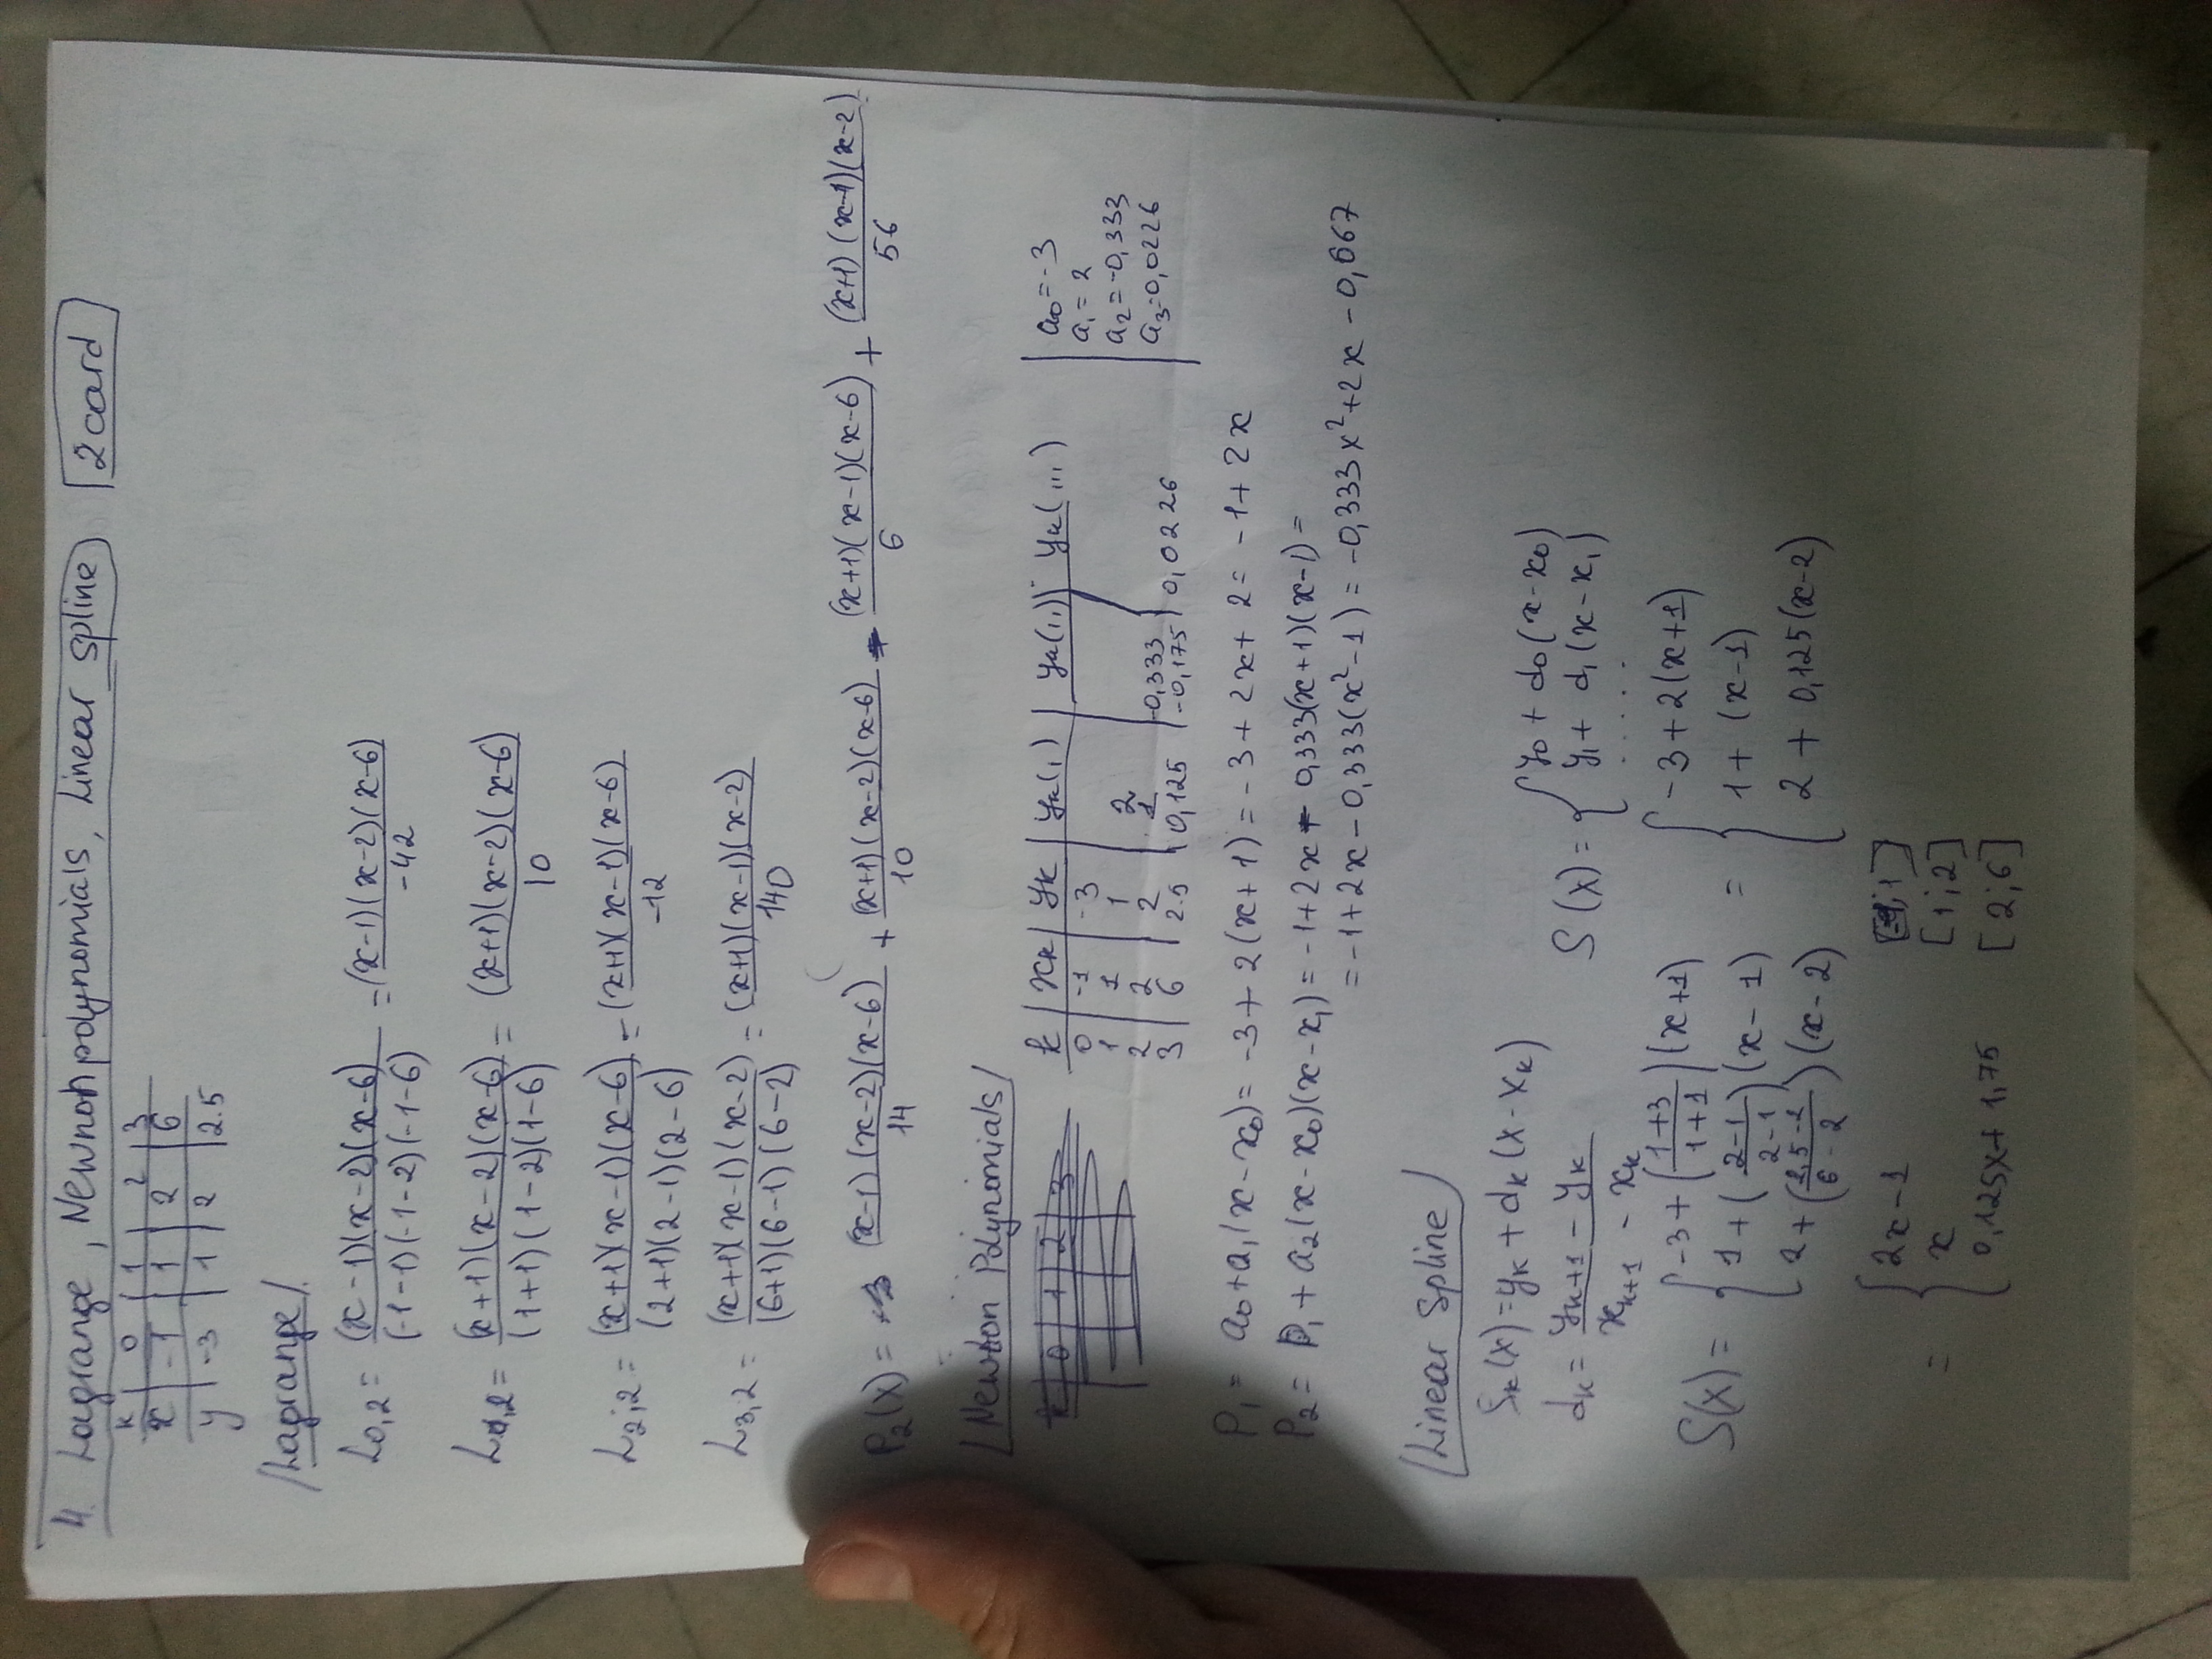 4. Lagrange, Newnon polynomials, Linear spline 2 card
k | 0 | 1 | 2 | 3
x | -1 | 1 | 2 | 6
y | -3 | 1 | 2 | 2.5
/Lagrange/.
L0,2 = (x-1)(x-2)(x-6) / (-1-1)(-1-2)(-1-6) = (x-1)(x-2)(x-6) / -42
L1,2 = (x+1)(x-2)(x-6) / (1+1)(1-2)(1-6) = (x+1)(x-2)(x-6) / 10
L2;2 = (x+1)(x-1)(x-6) / (2+1)(2-1)(2-6) = (x+1)(x-1)(x-6) / -12
L3,2 = (x+1)(x-1)(x-2) / (6+1)(6-1)(6-2) = (x+1)(x-1)(x-2) / 140
P2(x) = (x-1)(x-2)(x-6) / 14 + (x+1)(x-2)(x-6) / 10 - (x+1)(x-1)(x-6) / 6 + (x+1)(x-1)(x-2) / 56
/Newton Polynomials/
k | 0 | 1 | 2 | 3
k | xk | yk | yk(,) | yk(,,) | yk(,,,)
0 | -1 | -3
1 | 1 | 1 | 2
2 | 2 | 2 | 1 | -0,333
3 | 6 | 2.5 | 0,125 | -0,175 | 0,0226
a0 = -3
a1 = 2
a2 = -0,333
a3 = 0,0226
P1 = a0 + a1(x-x0) = -3 + 2(x+1) = -3 + 2x + 2 = -1 + 2x
P2 = P1 + a2(x-x0)(x-x1) = -1 + 2x - 0,333(x+1)(x-1) =
= -1 + 2x - 0,333(x²-1) = -0,333x² + 2x - 0,667
/Linear Spline/
Sk(x) = yk + dk(x-xk)
dk = yk+1 - yk / xk+1 - xk
S(x) = { y0 + d0(x-x0)
y1 + d1(x-x1)
.....
S(x) = { -3 + (1+3 / 1+1)(x+1) = { -3 + 2(x+1)
1 + (2-1 / 2-1)(x-1) 1 + (x-1)
2 + (2,5-2 / 6-2)(x-2) 2 + 0,125(x-2)
= { 2x-1 [-1;1]
x [1;2]
0,125x + 1,75 [2;6]